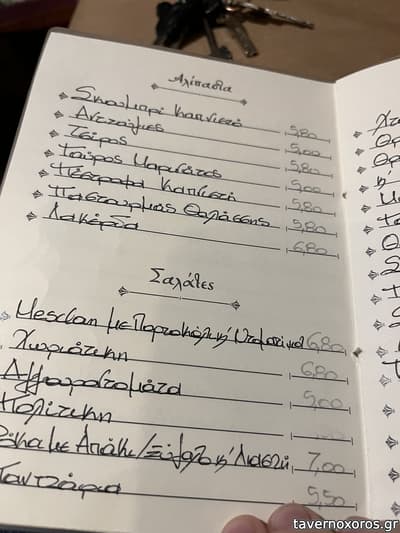 Αλίπαστα
Σκουμπρί καπνιστό 5,80
Αντζούγιες 5,00
Τσίρος 5,80
Γαύρος Μαρινάτος 5,00
Πέστροφα καπνιστή 5,80
Παστουρμάς Θαλάσσης 5,80
Λακέρδα 6,80
Σαλάτες
Mesclan με Πορτοκάλι 6,80
Χωριάτικη 6,80
Αγγουροτομάτα 5,00
Πολίτικη
Ρόκα με Απάκι/Ξύγαλο κ' Λιαστή 7,00
Παντζάρια 5,50
tavernoxoros.gr